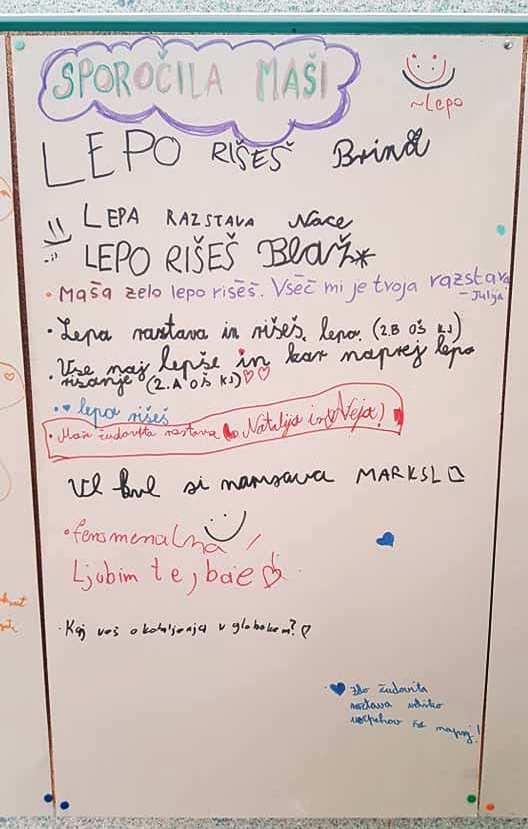 SPOROČILA MAŠI
~Lepo
LEPO RIŠEŠ Brina
LEPA RAZSTAVA Nace
LEPO RIŠEŠ Blaž*
• Maša zelo lepo rišeš. Všeč mi je tvoja razstava
- Julija
• Lepa rastava in rišeš lepo. (2.B OŠ KJ)
• Vse naj lepše in kar naprej lepo
risanje (2.A OŠ KJ) ♡♡
• lepo rišeš
• Maši čudovita rastava Natalija in Neja!
si narisava MARKSL
• fenomenalna
Ljubim te, baie ♡
• Kaj veš o v globokem? ♡
• Zelo čudovita
rastava veliko
uspehov še naprej!